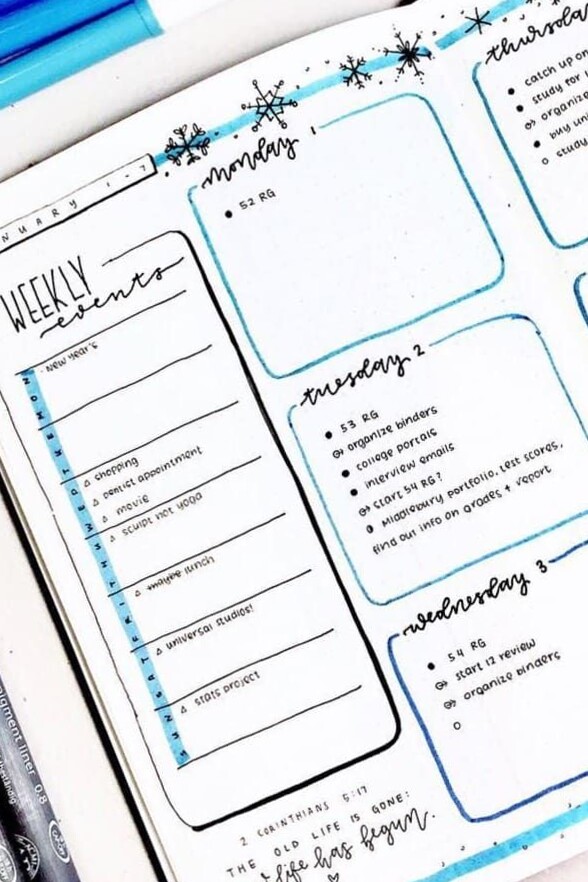 NUARY 1-7
WEEKLY
events
MON
- New Year's
TUE
WED
△ shopping
△ dentist appointment
△ movie
THU
△ sculpt hot yoga
FRI
△ maybe lunch
SAT
△ universal studios!
SUN
△ stats project
2 CORINTHIANS 5:17
THE OLD LIFE IS GONE:
life has begun.
monday 1
• 52 RG
tuesday 2
• 53 RG
organize binders
• college portals
• interview emails
start 54 RG?
Middlebury portfolio, test scores,
find out info on grades + report
wednesday 3
• 54 RG
start 12 review
organize binders
○
thursda
• catch up on
• study for
organize
• buy uni
○ study
pigment liner 0.8